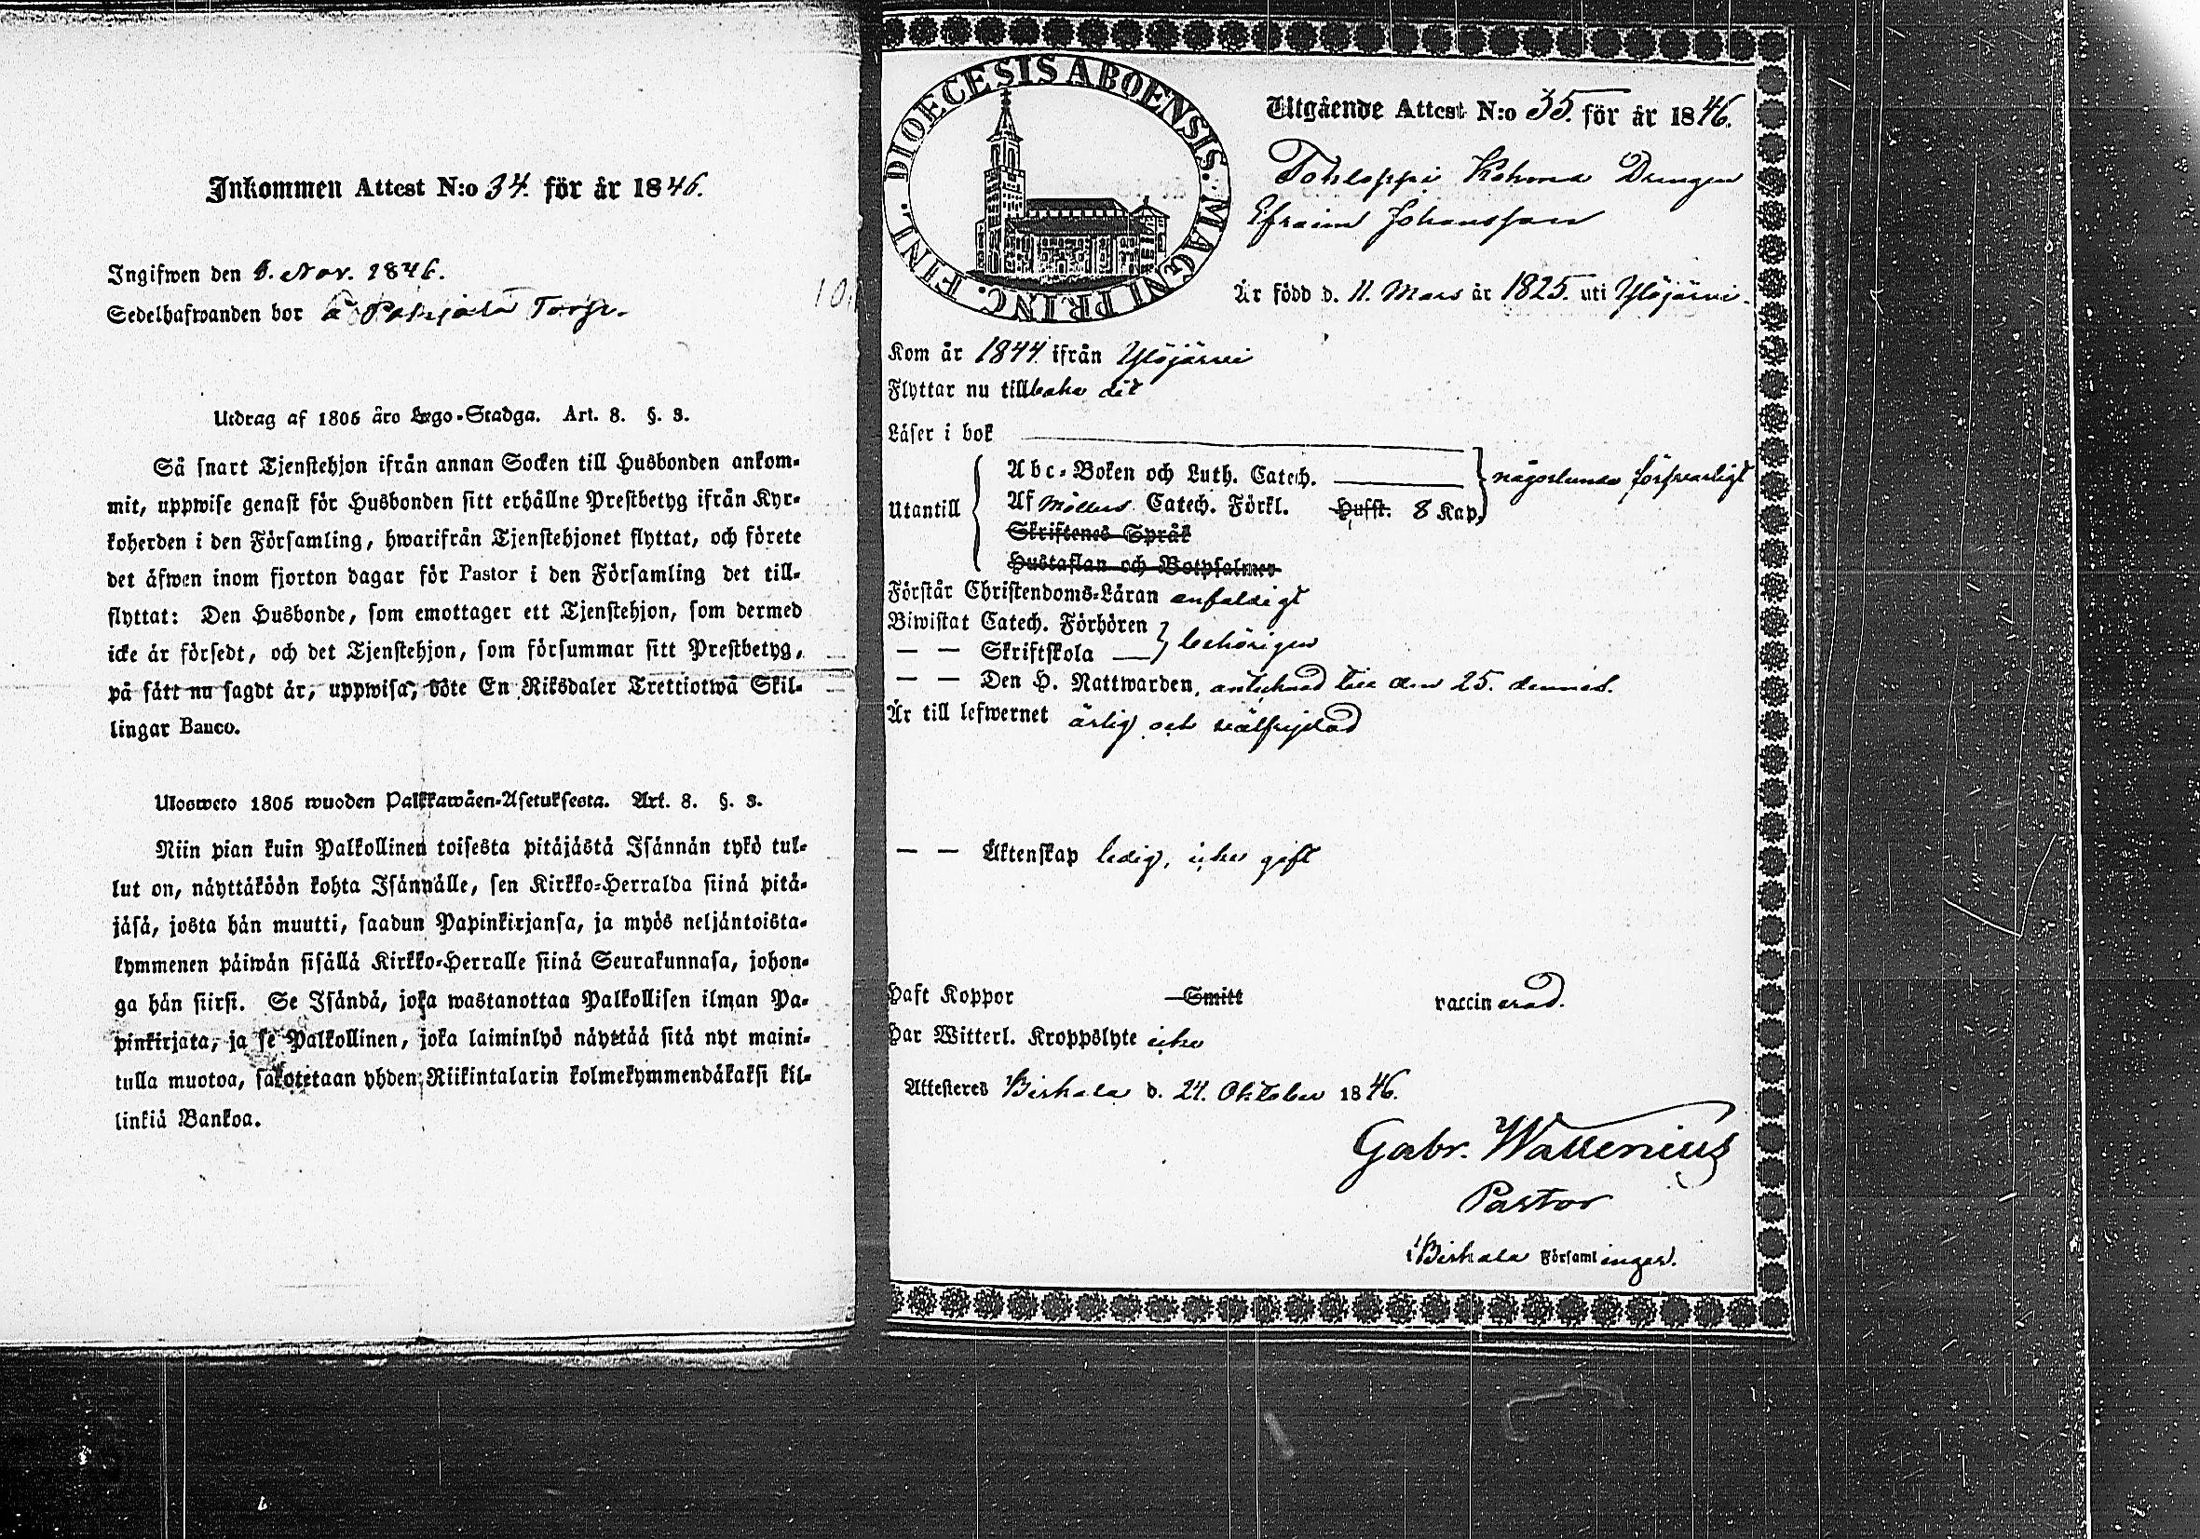 Inkommen Attest N:o 34. för år 1846.
Ingifwen den 1. Nov. 1846.
Sedelhafwanden bor å Pohjala Torp.
Utdrag af 1805 års Lego-Stadga. Art. 8. §. 3.
Så snart Tjenstehjon ifrån annan Socken till Husbonden ankom-
mit, uppwise genast för Husbonden sitt erhållne Prestbetyg ifrån Kyr-
koherden i den Församling, hwarifrån Tjenstehjonet flyttat, och förete
det äfwen inom fjorton dagar för Pastor i den Församling det till-
flyttat: Den Husbonde, som emottager ett Tjenstehjon, som dermed
icke är försedt, och det Tjenstehjon, som försummar sitt Prestbetyg,
på sätt nu sagdt är, uppwisa, böte En Riksdaler Trettiotwå Skil-
lingar Banco.
Ulosweto 1805 wuoden Palkkawäen-Asetuksesta. Art. 8. §. 3.
Niin pian kuin Palkollinen toisesta pitäjästä Isännän tykö tul-
lut on, näyttäköön kohta Isännälle, sen Kirkko-Herralda siinä pitä-
jäsä, josta hän muutti, saadun Papinkirjansa, ja myös neljäntoista-
kymmenen päiwän sisällä Kirkko-Herralle siinä Seurakunnasa, johon-
ga hän siirsi. Se Isändä, joka wastanottaa Palkollisen ilman Pa-
pinkirjata, ja se Palkollinen, joka laiminlyö näyttää sitä nyt maini-
tulla muotoa, sakotetaan yhden Riikintalarin kolmekymmendäkaksi kil-
linkiä Bankoa.
DIOECESIS ABOENSIS. MAGNI PRINC. FINL.
Utgående Attest N:o 35. för år 1846.
Tohloppi Kohma Drengen
Efraim Johansson
Är född d. 11. Mars år 1825. uti Ylöjärvi.
Kom år 1844 ifrån Ylöjärvi
Flyttar nu tillbaka dit
Läser i bok
Abc-Boken och Luth. Catech.
någorlunda försvarligt
Utantill
Af Möllers Catech. Förkl. Husst. 8 Kap.
Skriftenes Språk
Hustaflan och Botpsalmer
Förstår Christendoms-Läran enfaldigt
Biwistat Catech. Förhören
— — Skriftskola — behörigen
— — Den H. Nattwarden, antecknad till den 25. dennes.
Är till lefwernet ärlig och välfrejdad
— — Äktenskap ledig, icke gift
Haft Koppor Smitt vaccinerad.
Har Witterl. Kroppslyte icke
Attesteres Birkala d. 24. Oktober 1846.
Gabr. Wallenius
Pastor
i Birkala Församlingar.